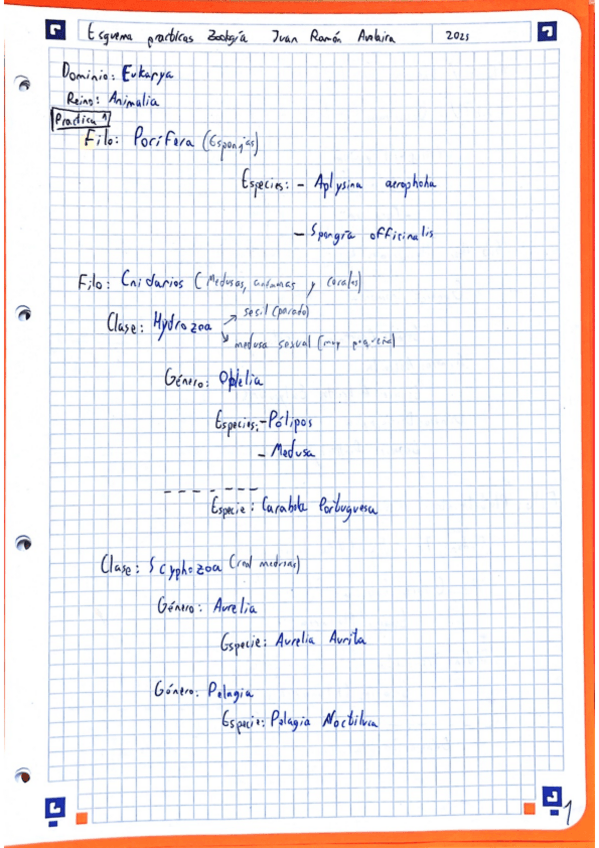 Esquema practicas Zoología Juan Ramón 2025
Dominio: Eukarya
Reino: Animalia
Practica 1
Filo: Porífera (Esponjas)
Especies: - Aplysina aerophoba
- Spongia officinalis
Filo: Cnidarios (Medusas, anémonas y corales)
Clase: Hydrozoa
sesil (parado)
medusa sexual (muy pequeña)
Género: Obelia
Especies: - Pólipos
- Medusa
Especie: Carabela Portuguesa
Clase: Scyphozoa (real medusas)
Género: Aurelia
Especie: Aurelia Aurita
Género: Pelagia
Especie: Pelagia Noctiluca
1